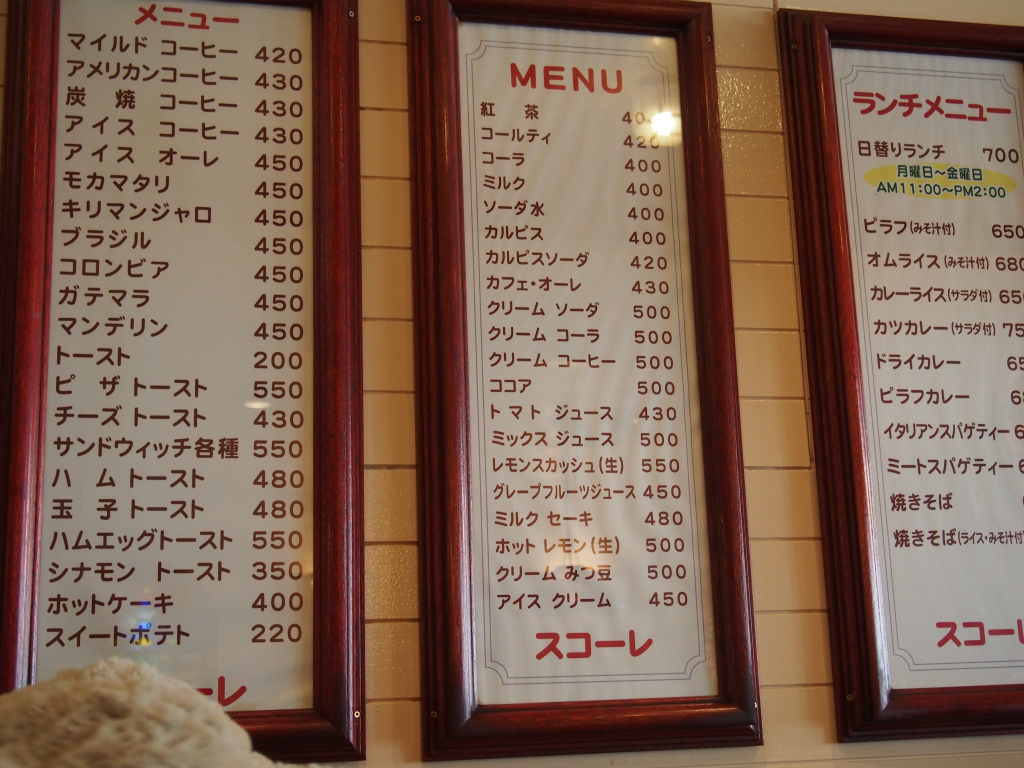 メニュー
マイルド コーヒー 420
アメリカンコーヒー 430
炭 焼 コーヒー 430
アイス コーヒー 430
アイス オーレ 450
モカマタリ 450
キリマンジャロ 450
ブラジル 450
コロンビア 450
ガテマラ 450
マンデリン 450
トースト 200
ピ ザ トースト 550
チーズ トースト 430
サンドウィッチ各種 550
ハ ム トースト 480
玉 子 トースト 480
ハムエッグトースト 550
シナモン トースト 350
ホットケーキ 400
スイートポテト 220
ーレ
MENU
紅 茶
コールティ 420
コーラ 400
ミルク 400
ソーダ水 400
カルピス 400
カルピスソーダ 420
カフェ・オーレ 430
クリーム ソーダ 500
クリーム コーラ 500
クリーム コーヒー 500
ココア 500
トマト ジュース 430
ミックス ジュース 500
レモンスカッシュ(生) 550
グレープフルーツジュース 450
ミルク セーキ 480
ホット レモン(生) 500
クリーム みつ豆 500
アイス クリーム 450
スコーレ
ランチメニュー
日替りランチ 700
月曜日〜金曜日
AM11:00〜PM2:00
ピラフ(みそ汁付) 650
オムライス(みそ汁付) 680
カレーライス(サラダ付) 650
カツカレー(サラダ付) 75
ドライカレー 65
ピラフカレー 6
イタリアンスパゲティー 6
ミートスパゲティー
焼きそば
焼きそば(ライス・みそ汁付)
スコーレ